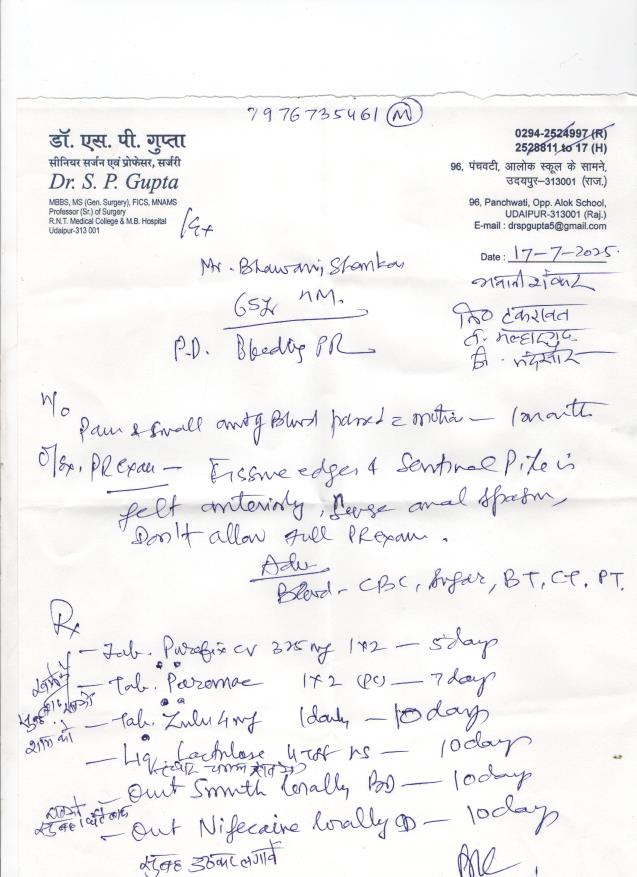 7976735461 (M)
डॉ. एस. पी. गुप्ता
सीनियर सर्जन एवं प्रोफेसर, सर्जरी
Dr. S. P. Gupta
MBBS, MS (Gen. Surgery), FICS, MNAMS
Professor (Sr.) of Surgery
R.N.T. Medical College & M.B. Hospital
Udaipur-313 001
0294-2524997 (R)
2528811 to 17 (H)
96, पंचवटी, आलोक स्कूल के सामने,
उदयपुर–313001 (राज.)
96, Panchwati, Opp. Alok School,
UDAIPUR-313001 (Raj.)
E-mail : drspgupta5@gmail.com
Date : 17-7-2025.
Mr. Bhawani Shankar
65yr HM.
P.D. Bleeding PR
भवानी शंकर
नि० टकरावत
त. मल्हारगढ़
जि. मंदसौर
H/o
Pain & small amt of Blood passed c motion - 1 month
O/Ex. PR exam - Fissure edges & Sentinel Pile is
felt anteriorly, severe anal spasm,
Don't allow full PR exam.
Adv
Blood - CBC, Sugar, BT, CT, PT.
Rx
- Tab. CV 325 mg 1x2 - 5 days
- Tab. 1x2 - 7 days
- Tab. Zulu 4mg 1 daily - 10 days
- Liq Lactulose 4 TSF HS - 10 days
- Oint Smuth locally BD - 10 days
सुबह
- Oint Nifecaine locally - 10 days
सुबह उठकर लगावें